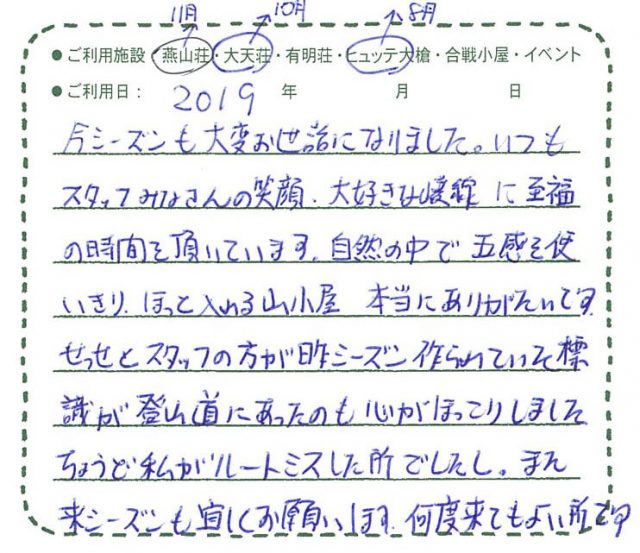 11月 10月 8月
● ご利用施設 燕山荘・大天荘・有明荘・ヒュッテ大槍・合戦小屋・イベント
● ご利用日： 2019 年 月 日
今シーズンも大変お世話になりました。いつも
スタッフみなさんの笑顔、大好きな稜線 に至福
の時間を頂いています。自然の中で 五感を使
いきり、ほっと入れる山小屋 本当にありがたいです
せっせとスタッフの方が昨シーズン作られていた標
識が登山道にあったのも心がほっこりしました
ちょうど私がルートミスした所でしたし。また
来シーズンも宜しくお願いします、何度来てもよい所です